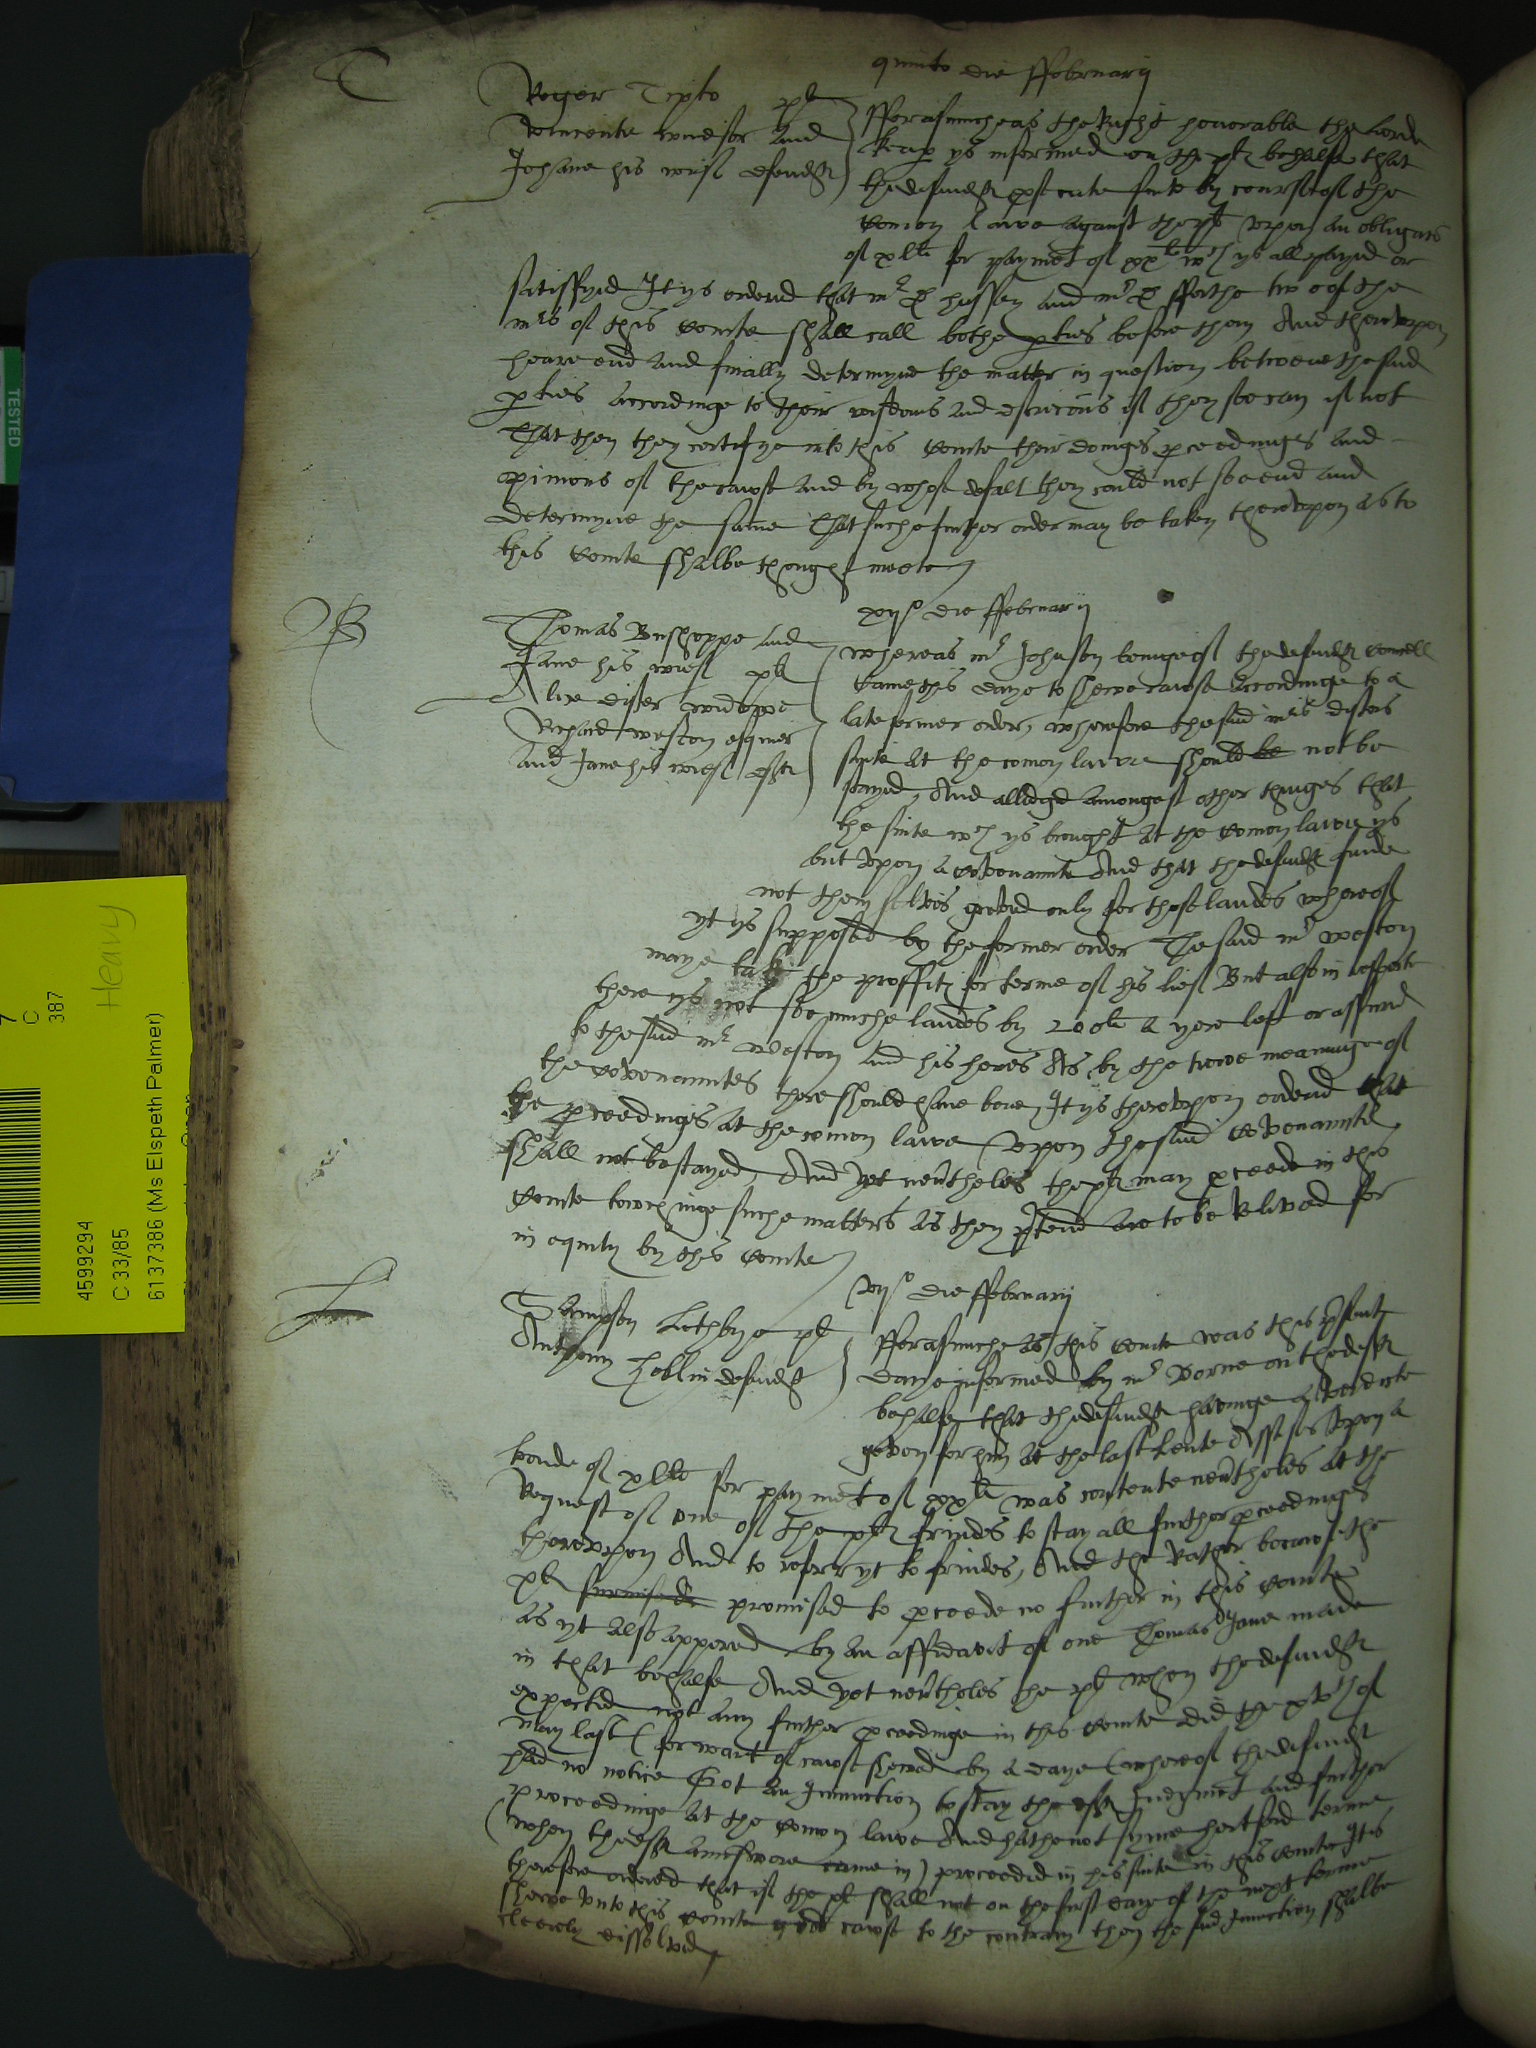 T
quinto die ffebruarij
Roger Tipto plt
Vincente Windsor and
Johane his wief defendt
fforasmuche as the Right honorable the Lorde
keap ys informed on the plt behalfe that
the defendt psecute sute by course of the
comon lawe against the plt vpon an obligacō
of xlli for paymēt of xxli wch ys all payed or
satisfyed It ys ordered that mr D hussey and mr D fforthe two of the
mrs of this courte shall call bothe pties before them And therevpon
heare end and finally determyne the matter in question betweene the said
pties accordinge to their wisdoms and discrecōns if they soe can if not
That then they certifye into this courte their doinges pceedinges and
opinions of the cawse and by whose defalt they could not soe end and
determyne the same That suche further order may be taken therevpon as to
this courte shalbe thought meete
B
xijo die ffebruarij
Thomas Busshoppe and
Jane his wief plt
Alice dister widowe
Richard weston esquier
and Jane his wief dfts
Whereas mr Johnson beinge of the defendt councell
came this daye to shewe cawse accordinge to a
late former order, wherefore the said mris disters
suite at the comon lawe should be not be
stayed, And alledged amongest other thinges that
the suite wch ys brought at the comon lawe ys
but vpon a covenaunte And that the defendt finde
not them selves greved only for those landes whereof
yt ys supposed by the former order The said mr weston
maye take the proffitz for terme of his lief But also in respecte
there ys not soe muche landes by 200li a yere left or assured
to the said mr weston and his heires As by the trewe meaninge of
the covenauntes there should have bene, It ys therevpon ordered that
the pceedinges at the comon lawe vpon the said covenaunte
shall not be stayed, And yet nevtheles the plt may pceede in this
courte towchinge suche matters as they ptend are to be relived for
in equity by this courte
L
vijo die ffebruarij
Sampson Lethbye plt
Anthony Joblin defendt
fforasmuche as this courte was this psent
daye informed by mr Borne on the deft
behalfe that the defendt havinge a verdicte
geven for him at the last Lente Assises vpon a
bonde of xlli for paymēt of xxli was contente nevtheles at the
Request of one of the plt frindes to stay all further pceedinges
therevpon And to referr yt to frindes, And the Rather because the
plt surmised promised to pceede no further in this courte
as yt also appered by an affidavit of one Thomas Jane made
in that behalfe And yet nevtheles the plt when the defendt
expected not any further pceedinge in this courte did the xvth of
may last (for want of cawse shewed by a daye (whereof the defendt
had no notice) Got an Iniunction to stay the dft Judgmēt and further
proceedinge at the comon lawe And hathe not syince hertford terme
(when the dft aunswere came in) proceeded in his suite in this courte It is
therefore ordered that if the plt shall not on the first daye of the next terme
shewe vnto this courte good cawse to the contrary then the said Iniunction shalbe
cleerely dissolved
TESTED
7
C
387
Heavy
4599294
C 33/85
6137386 (Ms Elspeth Palmer)